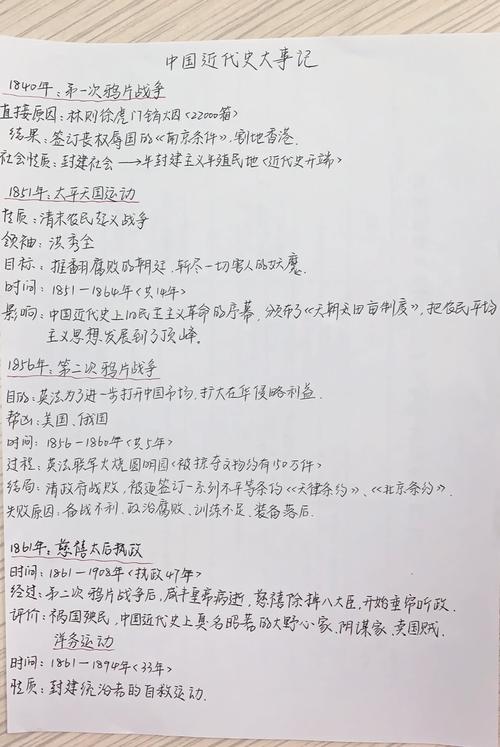 中国近代史大事记
1840年：第一次鸦片战争
直接原因：林则徐虎门销烟<22000箱>
结果：签订丧权辱国的《南京条件》，割地香港.
社会性质：封建社会→半封建主义半殖民地<近代史开端>
1851年：太平天国运动
性质：清末农民起义战争
领袖：洪秀全
目标：推翻腐败的朝廷，斩尽一切害人的妖魔.
时间：1851-1864年<共14年>
影响：中国近代史上旧民主主义革命的序幕，颁布了《天朝天田亩制度》，把农民平均
主义思想发展到了顶峰。
1856年：第二次鸦片战争
目的：英法为了进一步打开中国市场，扩大在华侵略利益.
帮凶：美国、俄国
时间：1856-1860年<共5年>
过程：英法联军火烧圆明园<被掠夺文物约有150万件>
结局：清政府战败，被迫签订一系列不平等条约《天津条约》、《北京条约》.
失败原因：备战不利、政治腐败、训练不足、装备落后.
1861年：慈禧太后执政
时间：1861-1908年<执政47年>
经过：第二次鸦片战争后，咸丰皇帝病逝，慈禧除掉八大臣，开始垂帘听政.
评价：祸国殃民，中国近代史上臭名昭著的大野心家、阴谋家、卖国贼.
洋务运动
时间：1861-1894年<33年>
性质：封建统治者的自救运动.